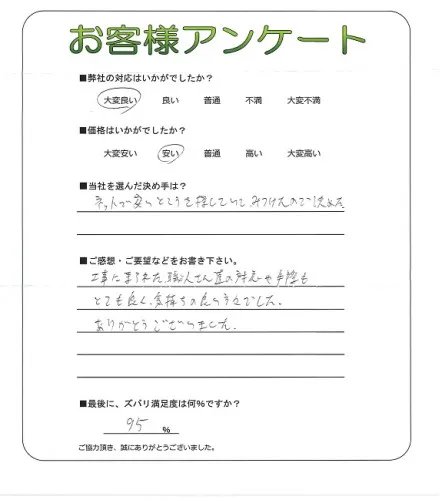 お客様アンケート
■弊社の対応はいかがでしたか?
大変良い 良い 普通 不満 大変不満
■価格はいかがでしたか?
大変安い 安い 普通 高い 大変高い
■当社を選んだ決め手は?
ネットで安いところを探していて、みつけたので決めた
■ご感想・ご要望などをお書き下さい。
工事に来られた職人さん達の対応や手際も
とても良く、気持ちの良い方々でした。
ありがとうございました。
■最後に、ズバリ満足度は何%ですか?
95 %
ご協力頂き、誠にありがとうございました。